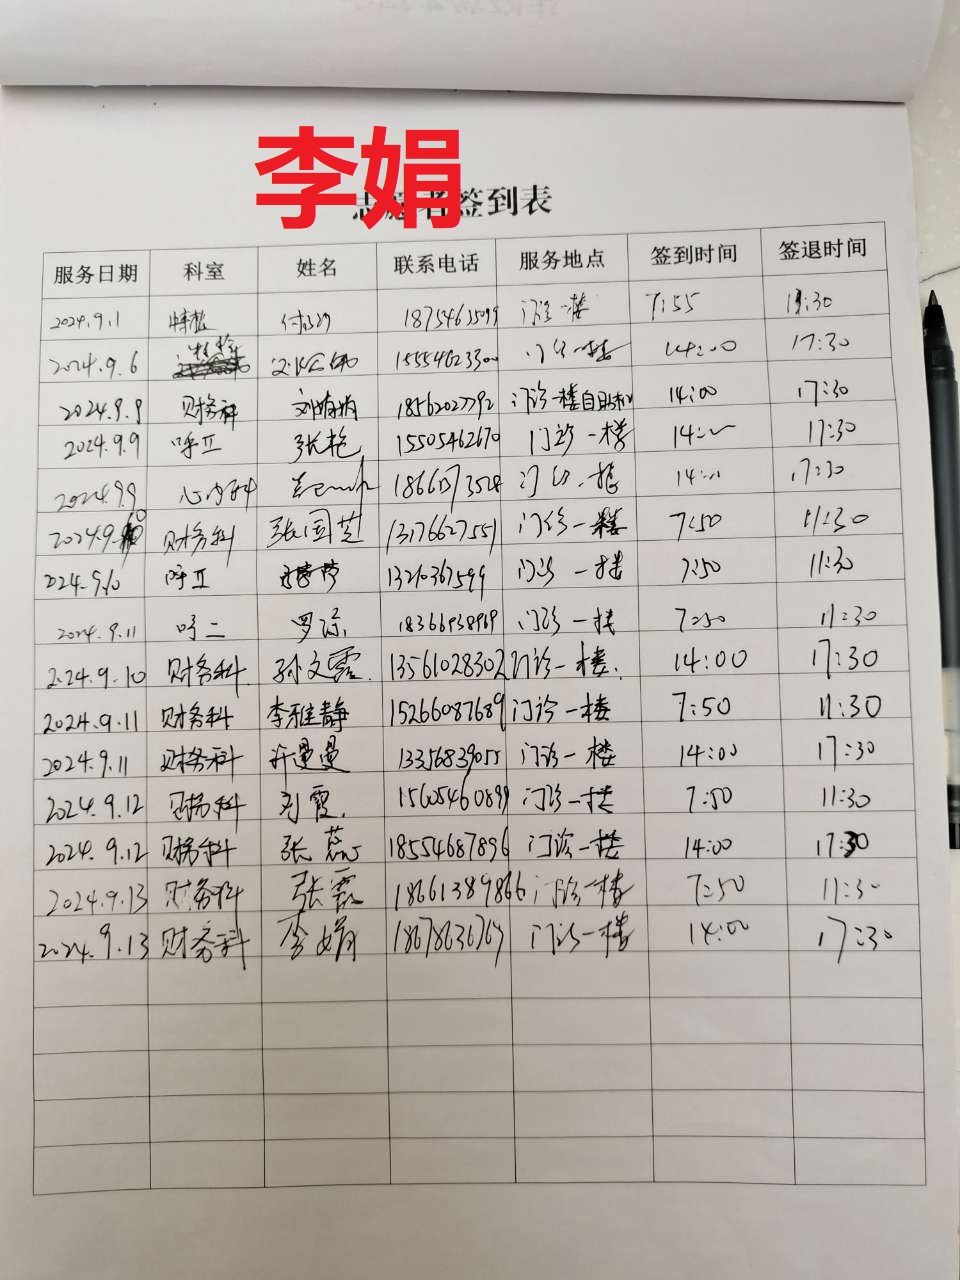 李娟
志愿者签到表
服务日期 科室 姓名 联系电话 服务地点 签到时间 签退时间
2024.9.1 18754635099 门诊一楼 7:55 11:30
2024.9.6 15554623300 门诊一楼 14:00 17:30
2024.9.9 财务科 刘娟娟 18562027792 门诊一楼自助机 14:00 17:30
2024.9.9 呼Ⅱ 张艳 15505462670 门诊一楼 14:00 17:30
2024.9.9 心内科 门诊一楼 14:00 17:30
2024.9.10 财务科 张国芝 13176627551 门诊一楼 7:50 11:30
2024.9.10 呼Ⅱ 13210367599 门诊一楼 7:50 11:30
2024.9.11 呼二 罗琼 18366938969 门诊一楼 7:50 11:30
2024.9.10 财务科 孙文霞 13561028302 门诊一楼 14:00 17:30
2024.9.11 财务科 李雅静 15266087689 门诊一楼 7:50 11:30
2024.9.11 财务科 许曼曼 13356839055 门诊一楼 14:00 17:30
2024.9.12 财务科 刘霞 15605460899 门诊一楼 7:50 11:30
2024.9.12 财务科 张蕊 18554687896 门诊一楼 14:00 17:30
2024.9.13 财务科 张霞 18661389866 门诊一楼 7:50 11:30
2024.9.13 财务科 李娟 18678636767 门诊一楼 14:00 17:30